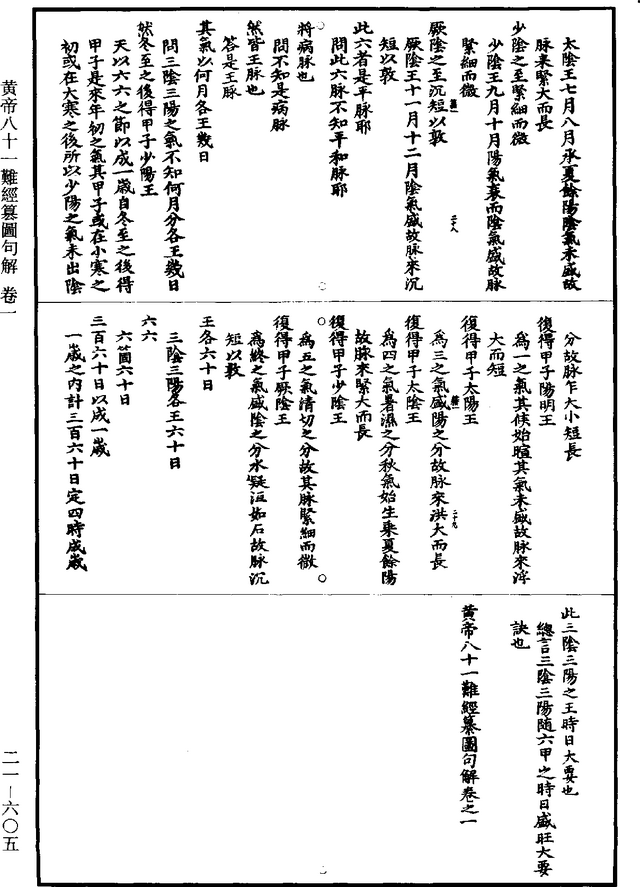 太陰王七月八月承夏餘陽陰氣未盛故
脉来緊大而長
少陰之至緊細而微
少陰王九月十月陽氣衰而陰氣盛故脉
緊細而微
厥陰之至沉短以敦
厥陰王十一月十二月陰氣盛故脉來沉
短以敦
此六者是平脉耶
問此六脉不知平和脉耶
將病脉也
問不知是病脉
然皆王脉也
答是王脉
其氣以何月各王幾日
問三陰三陽之氣不知何月分各王幾日
然冬至之後得甲子少陽王
天以六六之節以成一歲自冬至之後得
甲子是來年初之氣其甲子或在小寒之
初或在大寒之後所以少陽之氣未出陰
二十八
分故脉乍大小短長
復得甲子陽明王
為一之氣其候始暄其氣未盛故脉來浮
大而短
復得甲子太陽王
為三之氣盛陽之分故脉來洪大而長
復得甲子太陰王
為四之氣暑濕之分秋氣始生乗夏餘陽
故脉來緊大而長
復得甲子少陰王
為五之氣清切之分故其脉緊細而微
復得甲子厥陰王
為終之氣盛陰之分水凝沍如石故脉沉
短以敦
王各六十日
三陰三陽各王六十日
六六
六箇六十日
三百六十日以成一歲
一歲之内計三百六十日定四時成歲
二十九
此三陰三陽之王時日大要也
總言三陰三陽随六甲之時日盛旺大要
訣也
黄帝八十一難經纂圖句解卷之一
黄帝八十一難經纂圖句解 卷一
二一—六〇五